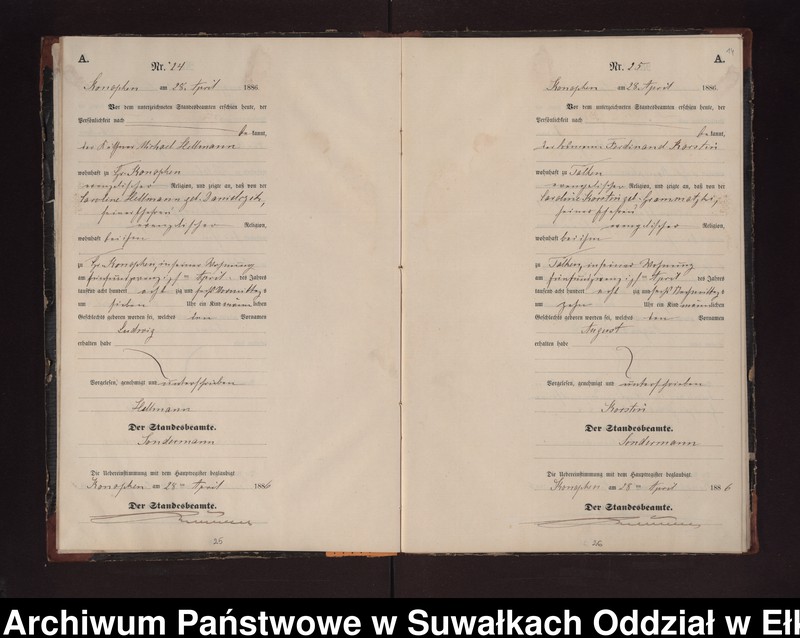 A.
Nr. 24
Konopken am 28. April 1886.
Vor dem unterzeichneten Standesbeamten erschien heute, der
Persönlichkeit nach
be kannt,
der Michael Hellmann
wohnhaft zu Gr. Konopken
evangelischer Religion, und zeigte an, daß von der
Caroline Hellmann geb. Danielczik,
seiner Ehefrau
evangelischer Religion,
wohnhaft bei ihm
zu Gr. Konopken, in seiner Wohnung
am fünfundzwanzigsten April des Jahres
tausend acht hundert acht zig und sechs Vormittags
um sieben Uhr ein Kind männlichen
Geschlechts geboren worden sei, welches den Vornamen
Ludwig
erhalten habe
Vorgelesen, genehmigt und unterschrieben
Hellmann
Der Standesbeamte.
Sondermann
Die Uebereinstimmung mit dem Hauptregister beglaubigt
Konopken am 28ten April 1886
Der Standesbeamte.
25
14
A.
Nr. 25
Konopken am 28. April 1886.
Vor dem unterzeichneten Standesbeamten erschien heute, der
Persönlichkeit nach
be kannt,
der Ferdinand Korstin
wohnhaft zu Talken
evangelischer Religion, und zeigte an, daß von der
Caroline Korstin geb. Grammatzki,
seiner Ehefrau
evangelischer Religion,
wohnhaft bei ihm
zu Talken, in seiner Wohnung
am fünfundzwanzigsten April des Jahres
tausend acht hundert acht zig und sechs Nachmittags
um zehn Uhr ein Kind männlichen
Geschlechts geboren worden sei, welches den Vornamen
August
erhalten habe
Vorgelesen, genehmigt und unterschrieben
Korstin
Der Standesbeamte.
Sondermann
Die Uebereinstimmung mit dem Hauptregister beglaubigt
Konopken am 28ten April 1886
Der Standesbeamte.
26
Archiwum Państwowe w Suwałkach Oddział w Ełk